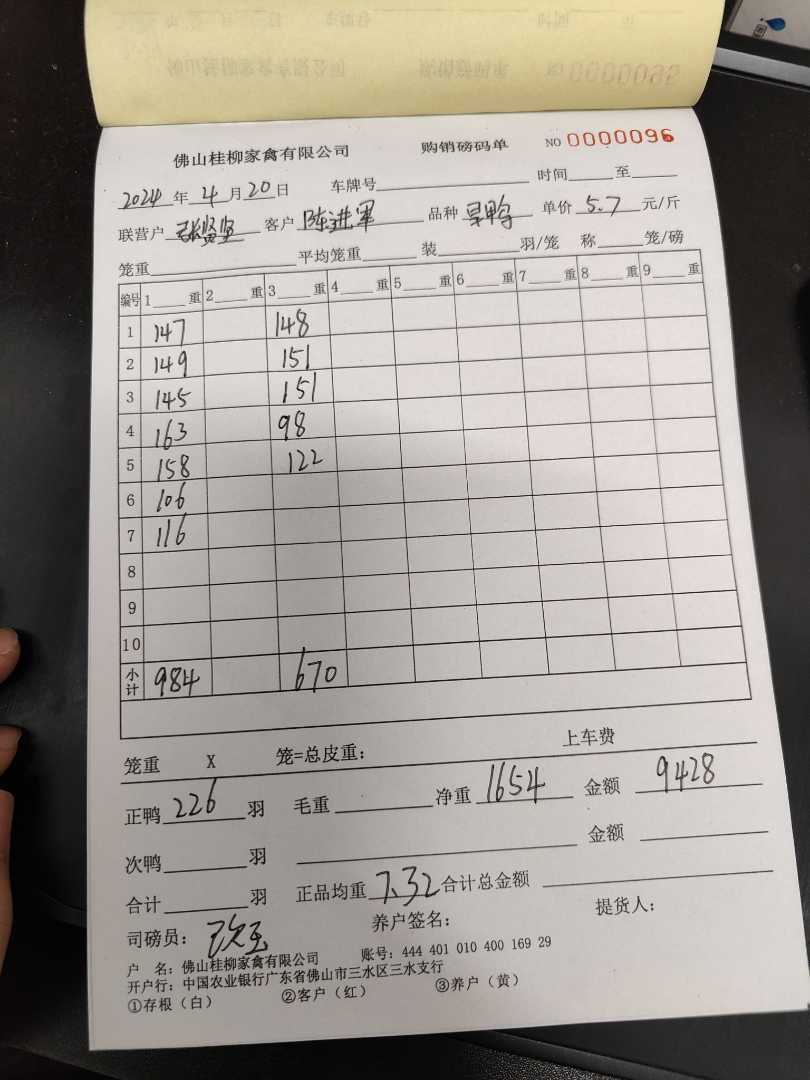 佛山桂柳家禽有限公司 购销磅码单 NO 0000096
2024年4月20日 车牌号 时间 至
联营户 张贤坚 客户 陈进军 品种 旱鸭 单价 5.7 元/斤
笼重 平均笼重 装 羽/笼 称 笼/磅
编号 1 重 2 重 3 重 4 重 5 重 6 重 7 重 8 重 9 重
1 147 148
2 149 151
3 145 151
4 163 98
5 158 122
6 106
7 116
8
9
10
小计 984 670
笼重 X 笼=总皮重: 上车费
正鸭 226 羽 毛重 净重 1654 金额 9428
次鸭 羽 金额
合计 羽 正品均重 7.32 合计总金额
司磅员: 养户签名: 提货人:
户 名: 佛山桂柳家禽有限公司 账号: 444 401 010 400 169 29
开户行: 中国农业银行广东省佛山市三水区三水支行
①存根(白) ②客户(红) ③养户(黄)